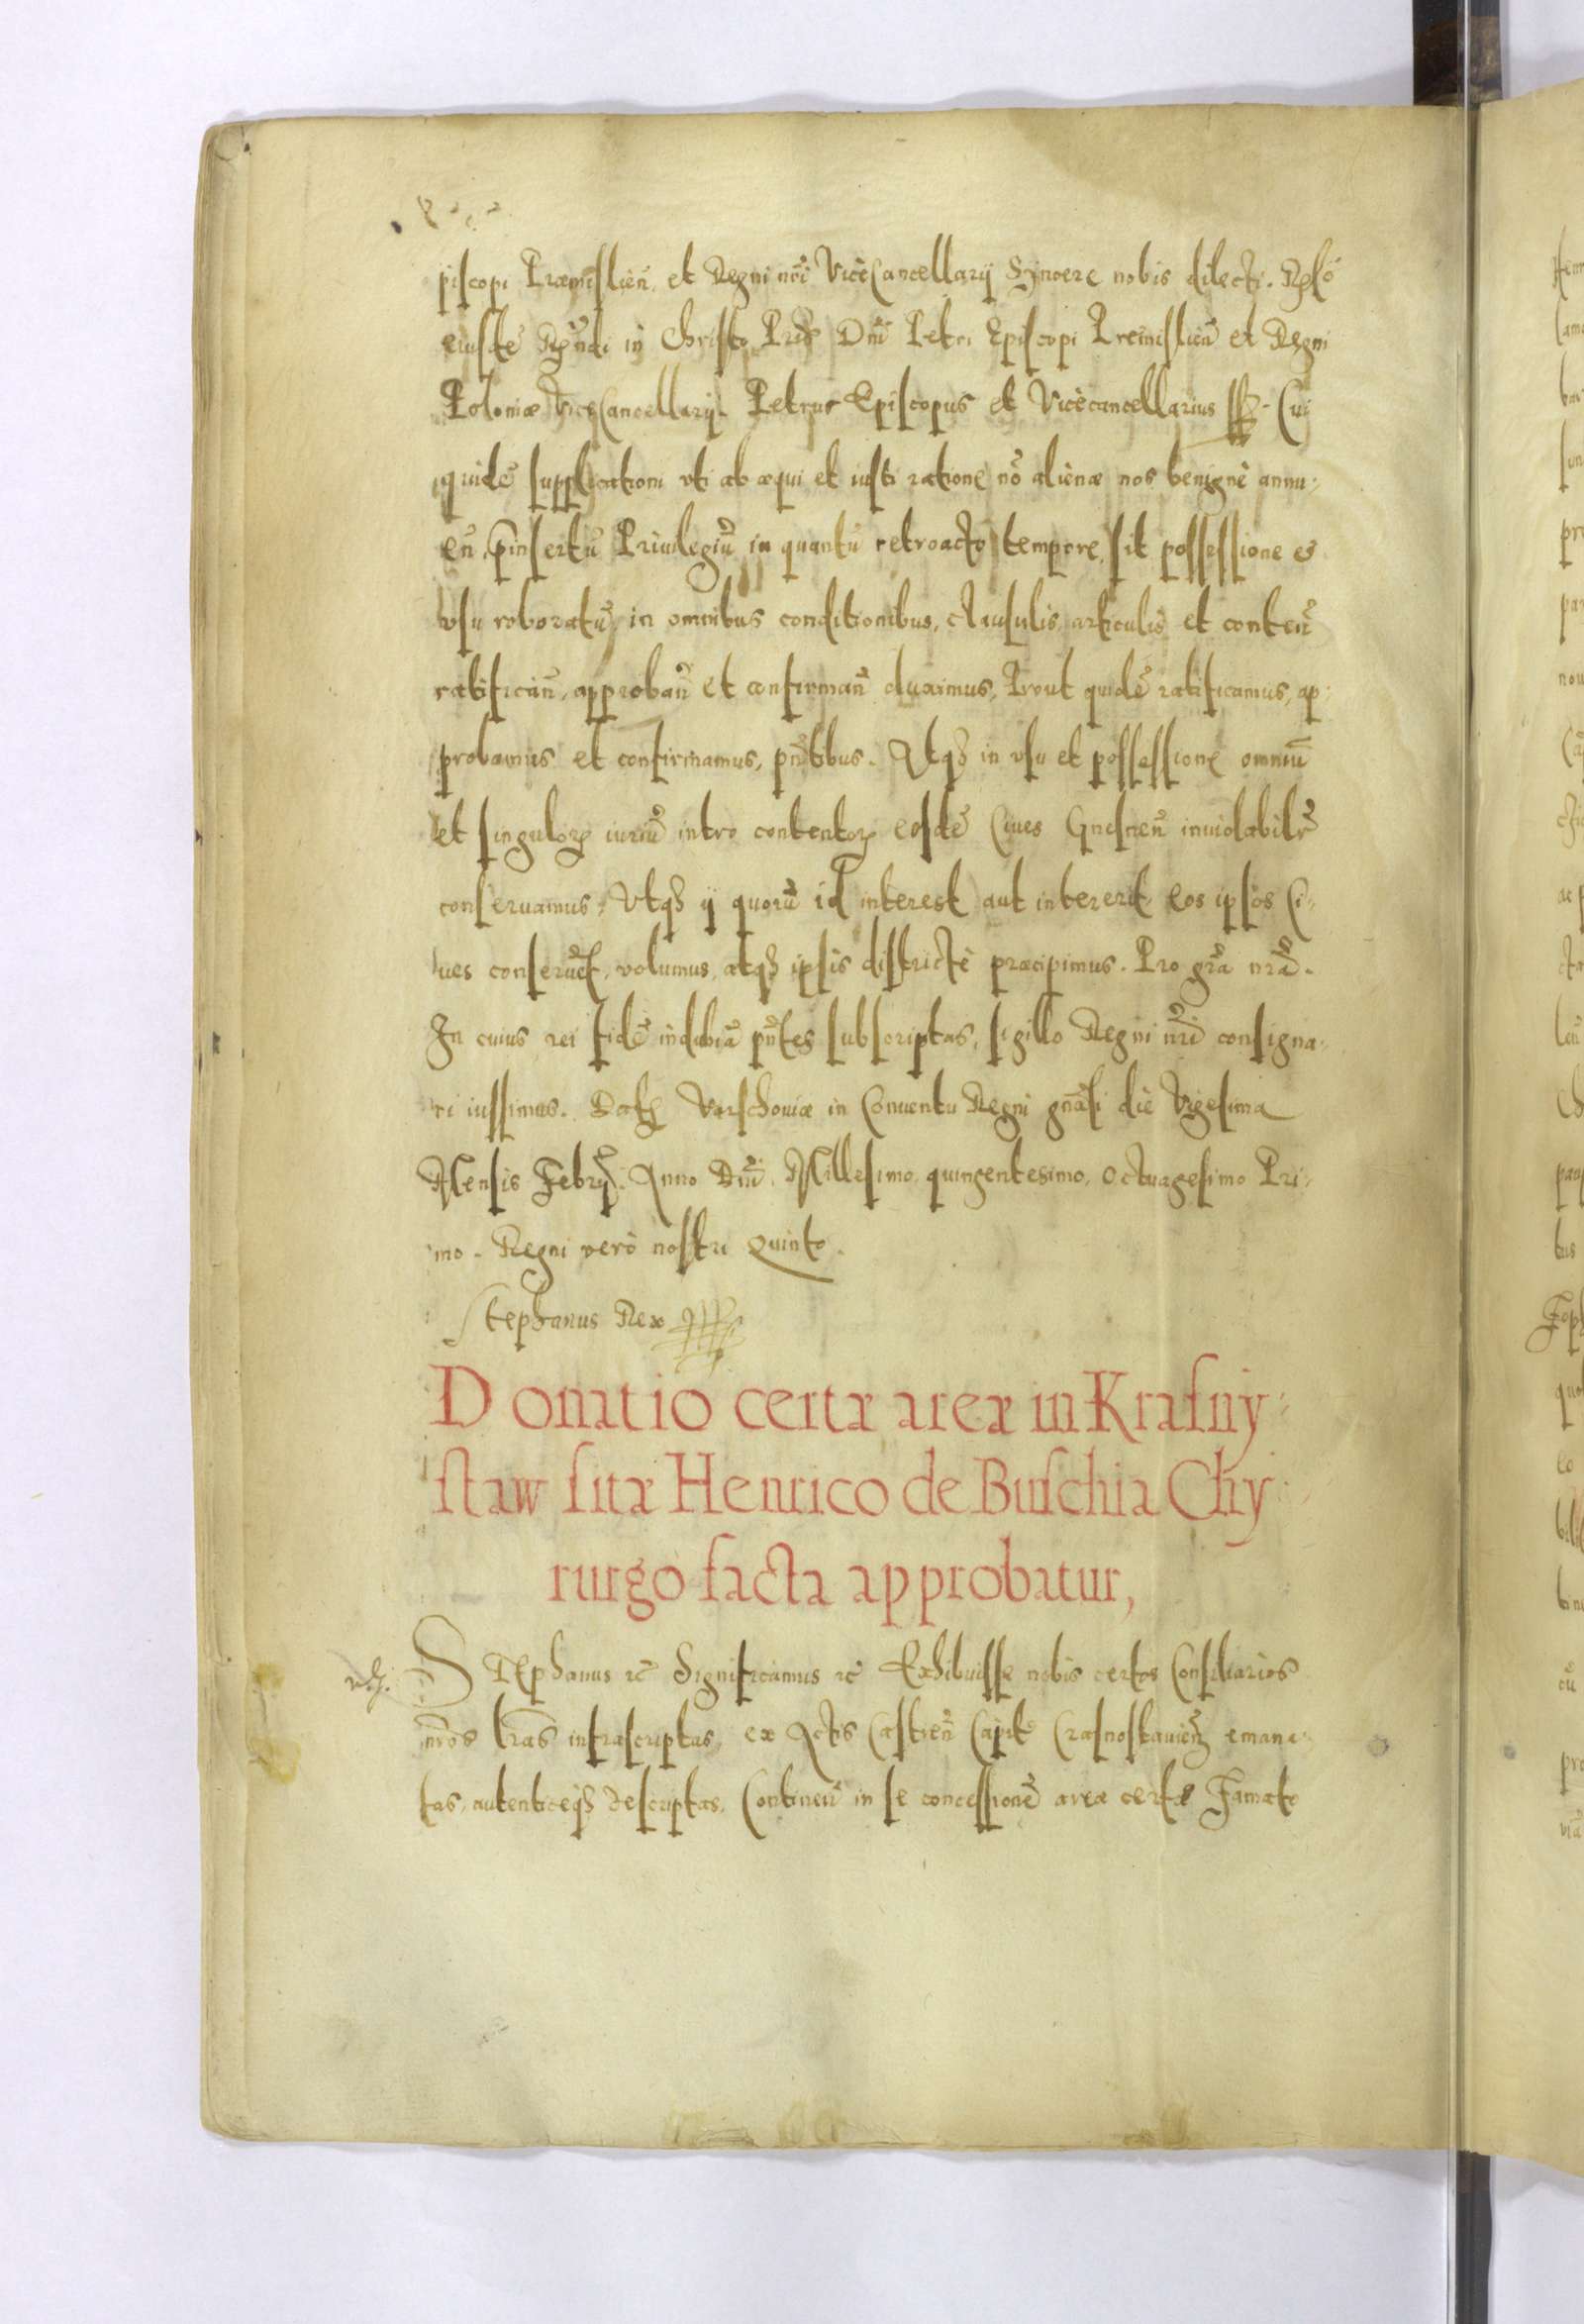 piscopi Præmislień, et Regni nr̃i ViceCancellarij Syncere nobis dilecti. Relõ
eiusdẽ Rn̄di in Christo Pr̃is Dn̄i Petri Episcopi Premisliēn et Regni
Poloniæ ViceCancellarij. Petrus Episcopus et Vicècancellarius ssz. Cui
quidẽ supplicationi vti ab æqui et iusti ratione nõ alienæ nos benignè annu-
eñ, p̄insertũ Priuilegiũ in quantũ retroacto tempore sit possessione et
vsu roboratũ, in omnibus conditionibus, clausulis, articulis et conteñ
ratificañ, approbañ et confirmañ duximus, Prout quidẽ ratificamus, ap-
probamus et confirmamus, pñtibus. Atq3 in vsu et possessione omniũ
et singuloꝝ iuriũ intro contentoꝝ eosdẽ Ciues Gnesneñ inuiolabilr̃
conseruamus, Vtq3 ij quorũ id interest aut intererit eos ipsos Ci-
ues conseruẽt, volumus, atq3 ipsis districtè præcipimus. Pro gr̃a nr̃a.
In cuius rei fidẽ indubiã pñtes subscriptas, sigillo Regni nr̃i consigna-
ri iussimus. Datꝭ Varschouiæ in Conuentu Regni gñali die Vigesima
Mensis Febrij. Anno Dñi. Millesimo quingentesimo, Octuagesimo Pri-
mo. Regni verò nostri Quinto.
Stephanus Rex
Donatio certæ areæ in Krasny-
staw sitæ Henrico de Buschia Chy-
rurgo facta approbatur,
STEphanus ꝛc̃ Significamus ꝛc̃ Exhibuisse nobis certos Consiliarios
nr̃os lr̃as infrascriptas, ex Actis Castreñ Capit̃ Crasnostauień emana-
tas, autenticeq3 descriptas, Contineñ in se concessionẽ areæ certæ Famato